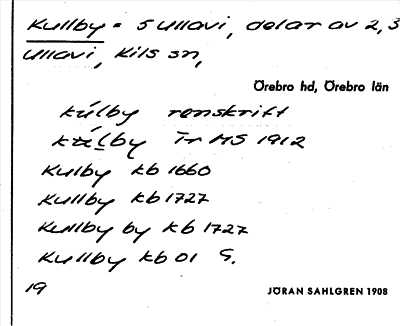 Kullby = 5 Ullavi, delar av 2, 3
Ullavi, Kils sn,
Örebro hd, Örebro län
kúlby renskrift
kúlby Tr MS 1912
Kulby kb 1660
Kullby kb 1727
Kullby by kb 1727
Kullby kb 01 G.
19
JÖRAN SAHLGREN 1908